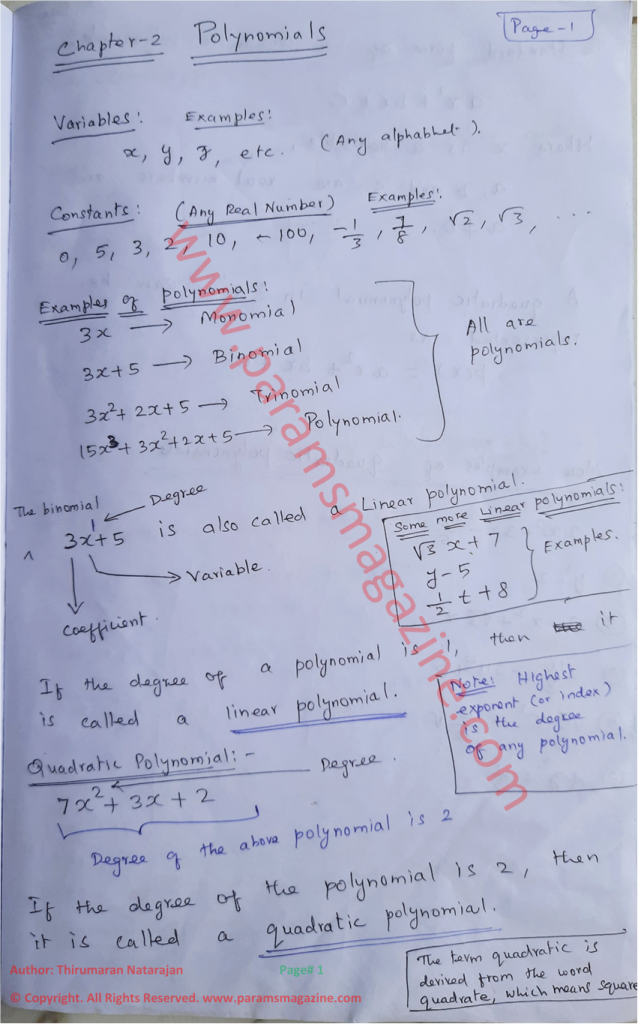 Page-1
Chapter-2 Polynomials
Variables: Examples:
x, y, z, etc. (Any alphabhet).
Constants: (Any Real Number) Examples:
0, 5, 3, 2, 10, -100, -1/3, 7/8, √2, √3, ...
Examples of polynomials:
3x → Monomial
3x+5 → Binomial
3x²+2x+5 → Trinomial
15x³+3x²+2x+5 → Polynomial.
All are
polynomials.
The binomial
Degree
1
^ 3x+5 is also called a Linear polynomial.
Variable.
coefficient.
Some more Linear polynomials:
√3 x + 7
y - 5
1/2 t + 8
Examples.
If the degree of a polynomial is 1, then it
is called a linear polynomial.
Note: Highest
exponent (or index)
is the degree
of any polynomial.
Quadratic Polynomial:-
Degree.
7x²+3x+2
Degree of the above polynomial is 2
If the degree of the polynomial is 2, then
it is called a quadratic polynomial.
The term quadratic is
derived from the word
quadrate, which means square
www.paramsmagazine.com
Author: Thirumaran Natarajan Page# 1
© Copyright. All Rights Reserved. www.paramsmagazine.com